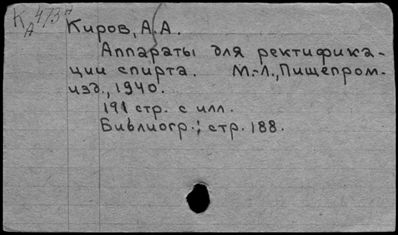 К 473
А
Киров, А.А.
Аппараты для ректифика-
ции спирта. М.-Л., Пищепром-
изд., 1940.
191 стр. с илл.
Библиогр.: стр. 188.